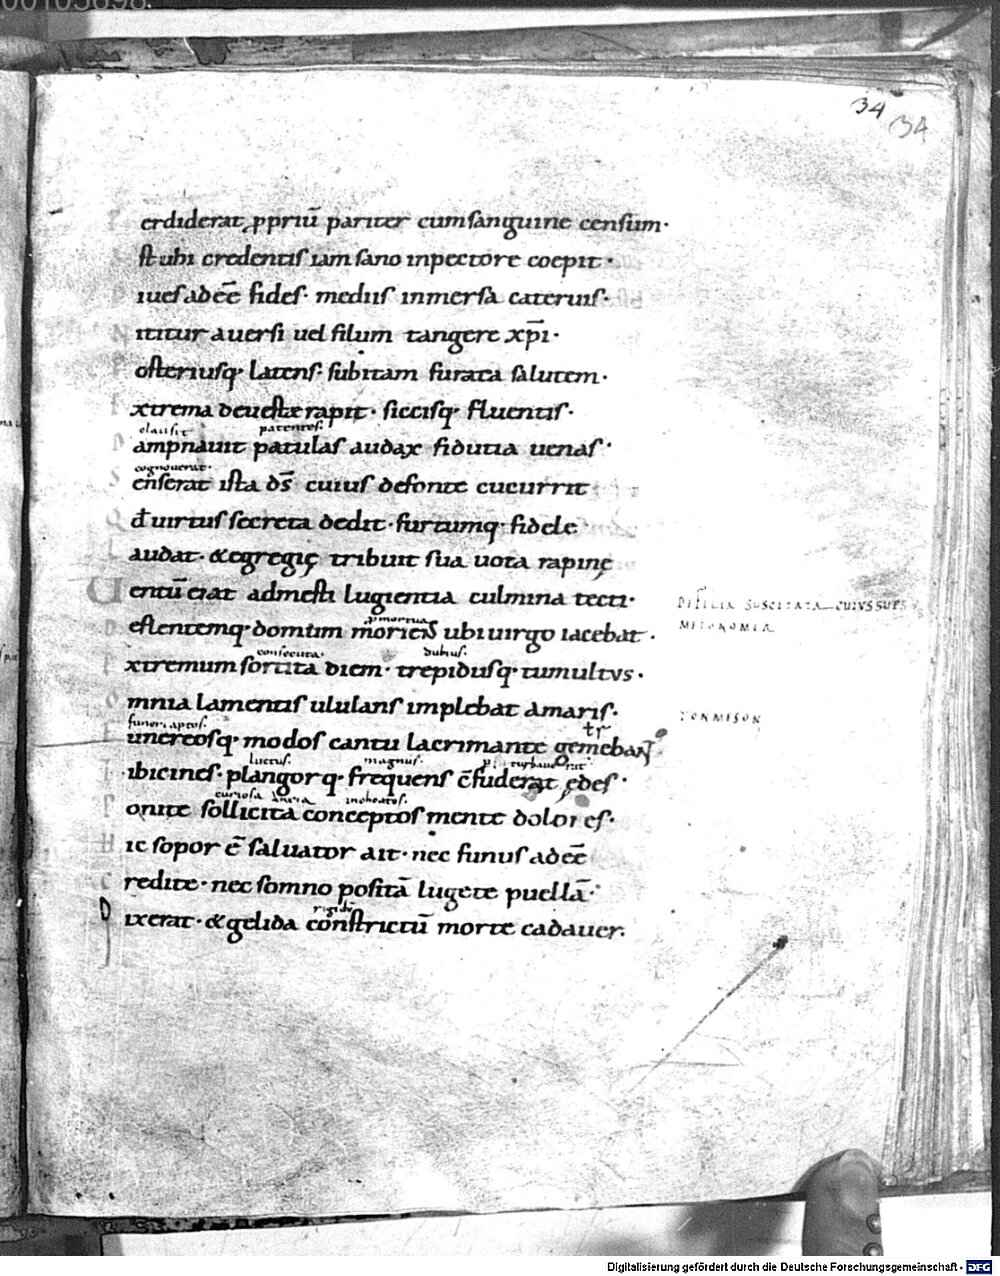 00105698
34 34
Perdiderat ꝓpriū pariter cum sanguine censum·
Ast ubi credentis iam sano inpectore coepit·
Diues adeēē fides· mediis inmersa cateruis·
Nititur auersi uel filum tangere xp̄i·
Posteriusq· latens· subitam furata salutem·
Extrema de ueste rapit· siccisq· fluentis·
clausit patentes·
Dampnauit patulas audax fidutia uenas·
cognouerat·
Senserat ista ds̄ cuius de fonte cucurrit
Qđ uirtus secreta dedit· furtumq· fidele
Laudat· & egregię tribuit sua uota rapinę
Uentū erat ad mesti lugientia culmina tecti·
DIFILIA SUSCITATA CUIVS SUPE
METONOMIA
Deflentemq· domum moriens ubi uirgo iacebat·
p mortua
consecuta· dubius·
Extremum sortita diem· trepidusq· tumultus·
Omnia lamentis ululans implebat amaris·
funeri aptos·
Funereosq· modos cantu lacrimante gemebant
luctus· magnus·
Tibicines· plangor q· frequens cf̄uderat ędes·
curiosa anxia incheatos·
Ponite sollicita conceptos mente dolores·
Hic sopor ē saluator ait· nec funus adeēē
Credite· nec somno positā lugete puellā·
rigidū
Dixerat· & gelida constrictū morte cadauer·
Digitalisierung gefördert durch die Deutsche Forschungsgemeinschaft - DFG